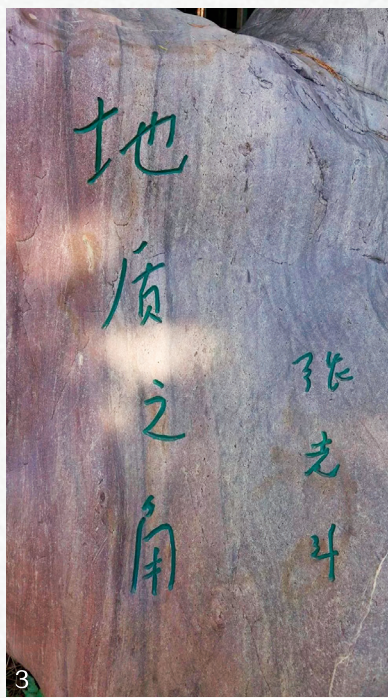 地质之角
张光斗
3